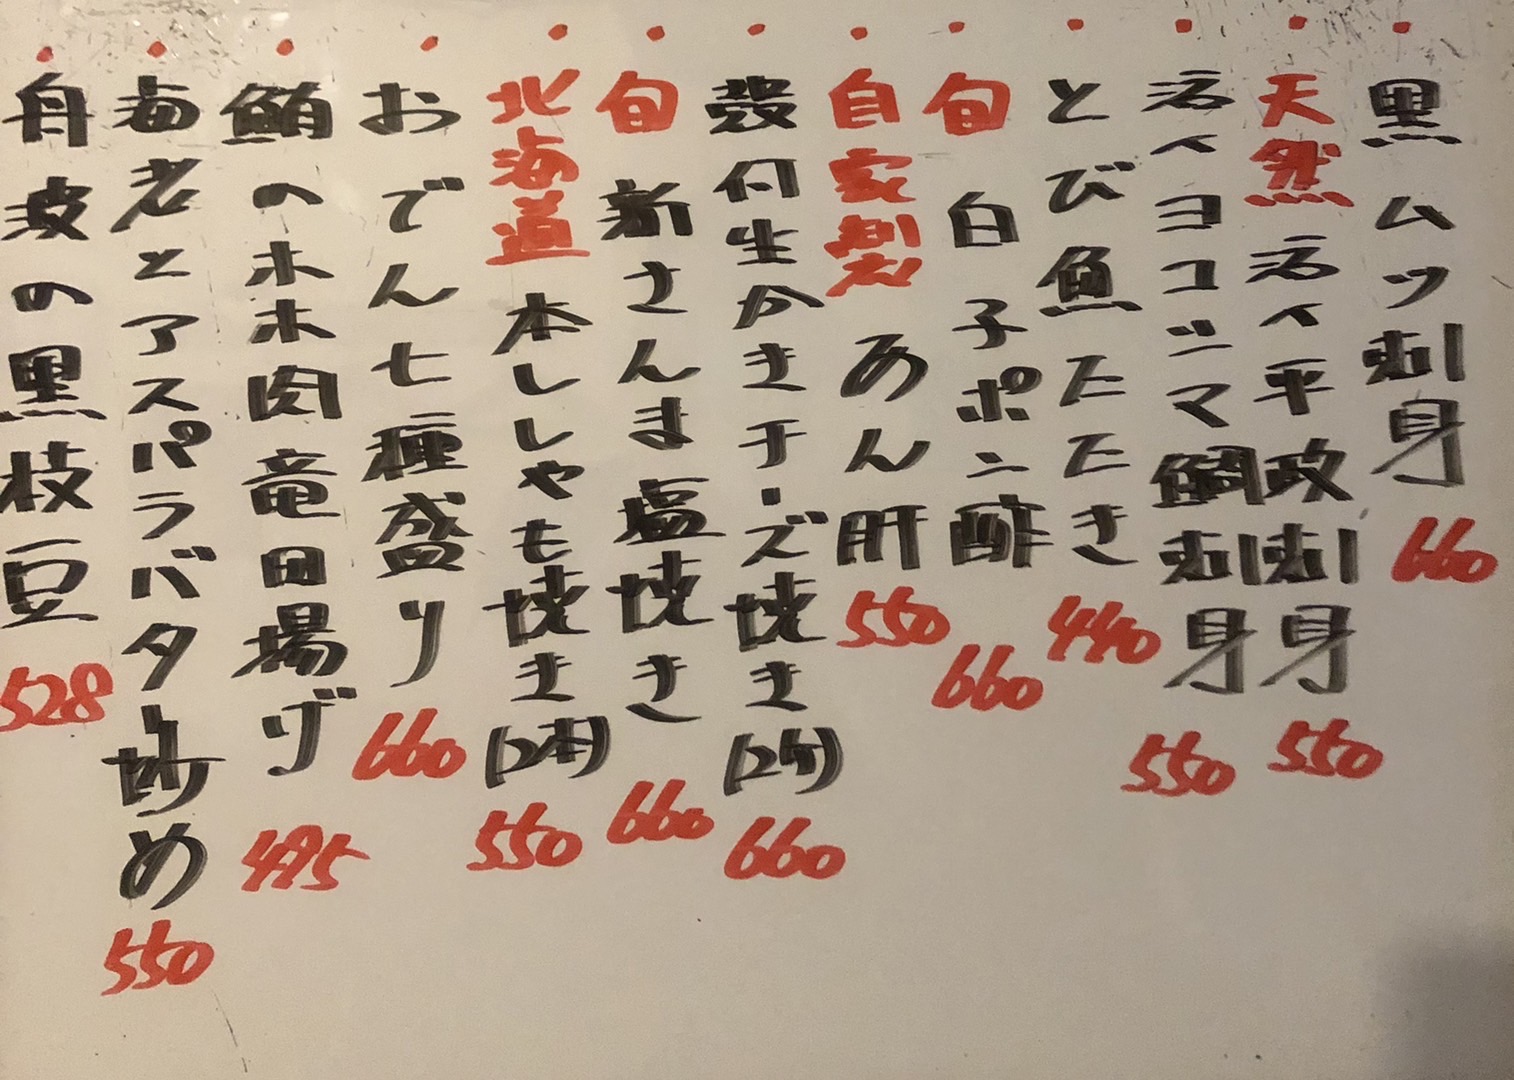 ・黒ムツ刺身 660
・天然 活〆平政刺身 550
・活〆ヨコシマ鯛刺身 550
・とび魚たたき 440
・旬 白子ポン酢 660
・自家製 あん肝 550
・殻付生かきチーズ焼き(2ケ) 660
・旬 新さんま塩焼き 660
・北海道 本ししゃも焼き(2本) 550
・おでん七種盛り 660
・鮪のホホ肉竜田揚げ 495
・海老とアスパラバター炒め 550
・丹波の黒枝豆 528